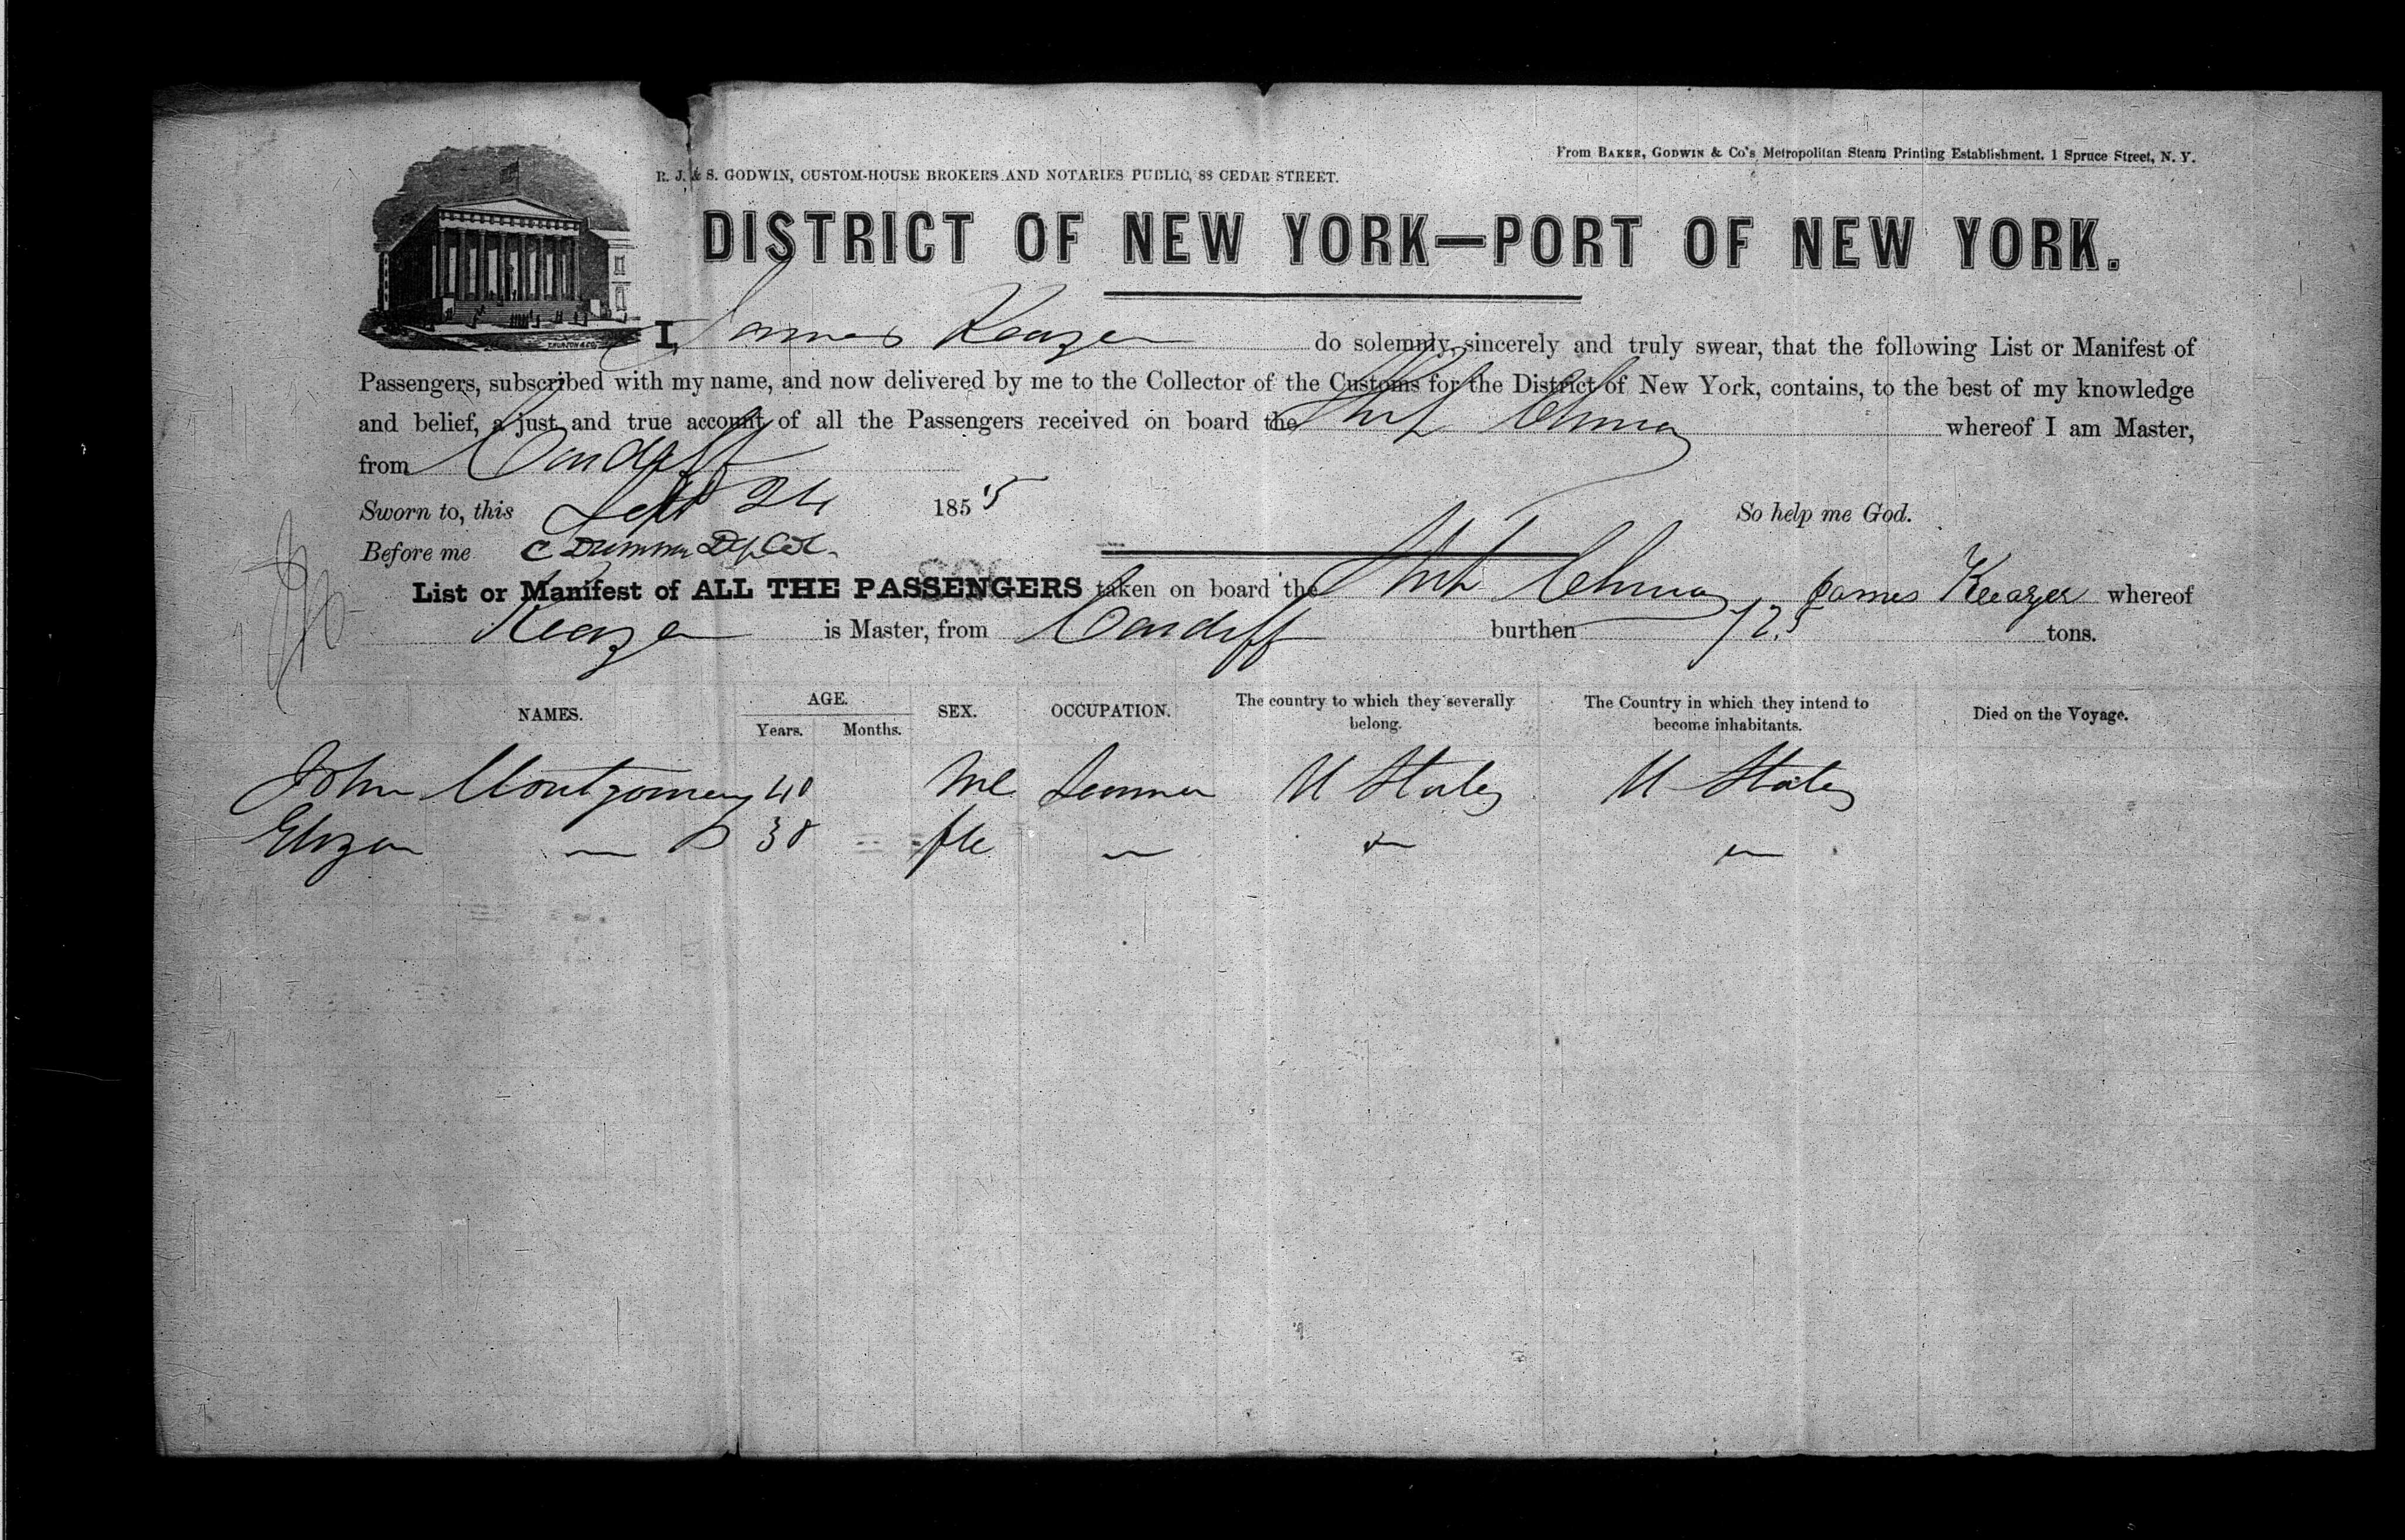 From BAKER, GODWIN & Co's Metropolitan Steam Printing Establishment, 1 Spruce Street, N. Y.
R. J. & S. GODWIN, CUSTOM-HOUSE BROKERS AND NOTARIES PUBLIC, 88 CEDAR STREET.
DISTRICT OF NEW YORK—PORT OF NEW YORK.
I, James Keazer do solemnly, sincerely and truly swear, that the following List or Manifest of
Passengers, subscribed with my name, and now delivered by me to the Collector of the Customs for the District of New York, contains, to the best of my knowledge
and belief, a just and true account of all the Passengers received on board the whereof I am Master,
from Cardiff
Sworn to, this Sept 24 1855 So help me God.
Before me C Dep Col.
List or Manifest of ALL THE PASSENGERS taken on board the James Keazer whereof
Keazer is Master, from Cardiff burthen 725 tons.
NAMES. AGE. Years. Months. SEX. OCCUPATION. The country to which they severally belong. The Country in which they intend to become inhabitants. Died on the Voyage.
John Montgomery 40 Ml U States U States
Eliza — 38 fle — — —